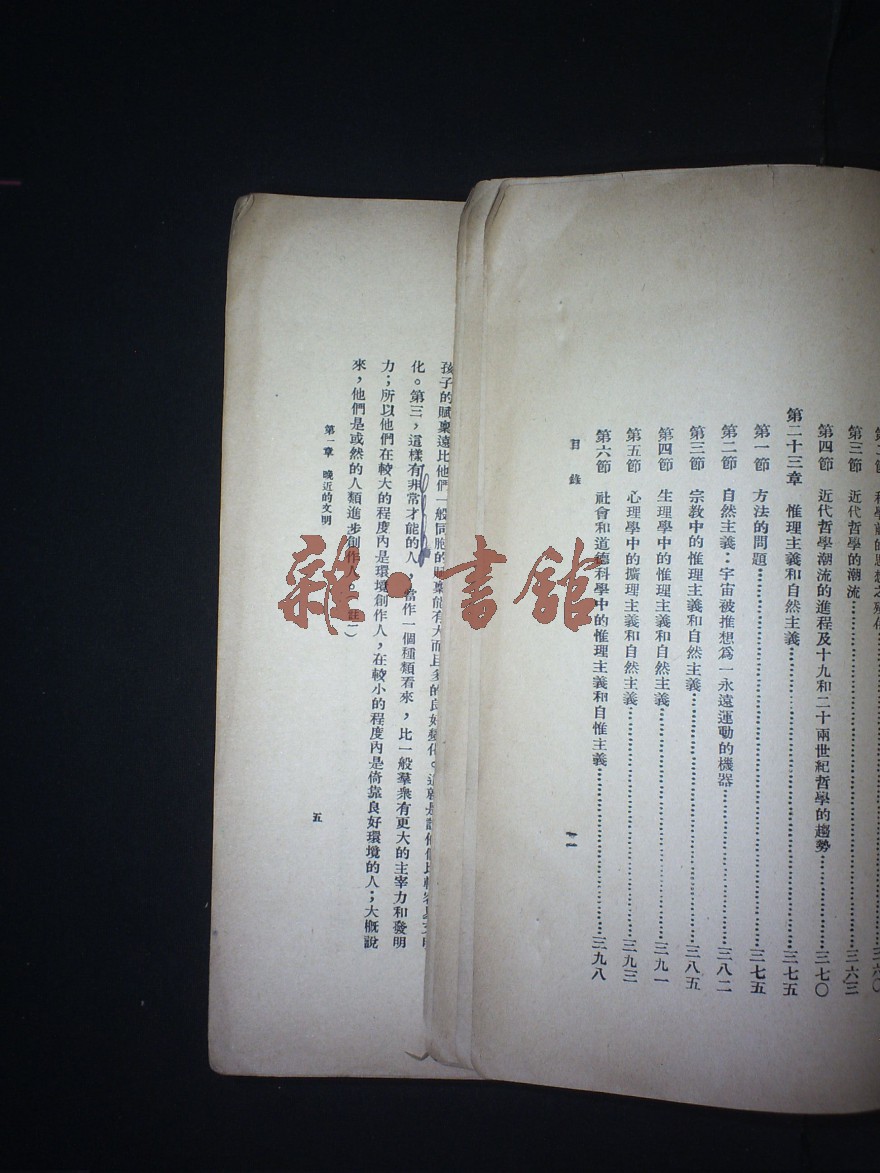 第三節 近代哲學的潮流……三六三
第四節 近代哲學潮流的進程及十九和二十兩世紀哲學的趨勢……三七〇
第二十三章 惟理主義和自然主義……三七五
第一節 方法的問題……三七五
第二節 自然主義：宇宙被推想爲一永遠運動的機器……三八二
第三節 宗教中的惟理主義和自然主義……三八五
第四節 生理學中的惟理主義和自然主義……三九一
第五節 心理學中的擴理主義和自然主義……三九三
第六節 社會和道德科學中的惟理主義和自惟主義……三九八
目錄
十一
孩子的賦稟遠比他們一般同胞的賦稟能有大而且多的良好變化。這就是說他們比較容易文明
化。第三，這樣有非常才能的人，當作一個種類看來，比一般羣衆有更大的主宰力和發明
力；所以他們在較大的程度內是環境創作人，在較小的程度內是倚靠良好環境的人；大概說
來，他們是或然的人類進步創作人。（註一）
第一章 晚近的文明
五
雜·書館